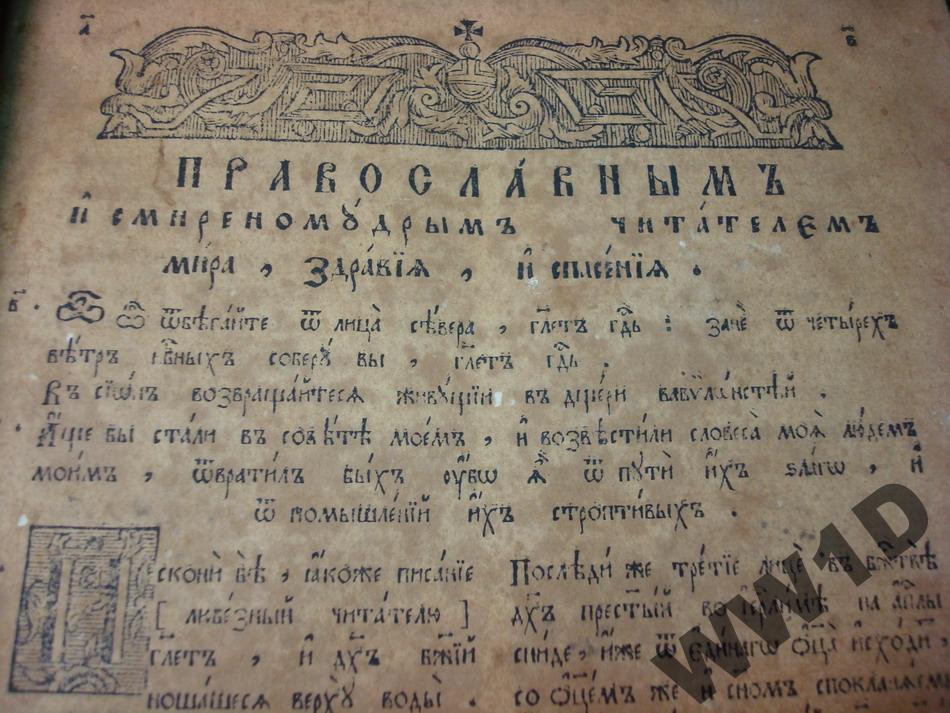 ПРАВОСЛА́ВНЫМЪ
И҆ смиреномꙋ́дрымъ чита́телемъ
ми́ра , здра́вїѧ , и҆ спасе́нїѧ .
Ѽ Ѽ ѿбѣга́йте ѿ лица̀ сѣ́вера , гл҃етъ гд҇ь : занѐ ѿ четы́рехъ
вѣ́тръ нб҇ныхъ соберꙋ̀ вы , гл҃етъ гд҇ь .
Въ сїѡ́нъ возвраща́йтесѧ живꙋ́щїи въ дще́ри вавѷлѡ́нстѣй .
А҆́ще бы ста́ли въ совѣ́тѣ мое́мъ , и҆ возвѣсти́ли словеса̀ моѧ̀ лю́демъ
мои́мъ , ѿврати́лъ бы́хъ ᲂу҆́бѡ ѧ҆̀ ѿ пꙋтѝ и҆́хъ ѕла́гѡ , и҆
ѿ помышле́нїй и҆́хъ стропти́выхъ .
Искони бѣ̀ , ꙗ҆́коже писа́нїе
[ любе́зный чита́телю ]
гл҃етъ , и҆ дх҃ъ бж҃їй
ноша́шесѧ верхꙋ̀ воды̀ .
Послѣди́ же тре́тїе лицѐ въ бж҇твѣ̀
дх҃ъ прест҃ы́й во і҆ер҇ли́мѣ на а҆п҇лы
сни́де , и҆́же ѿ є҆ди́нагѡ ѻ҆ц҃а̀ и҆схо́ди
со ѻ҆ц҃е́мъ же и҆ сн҃омъ спокланѧ́емы
WW1D